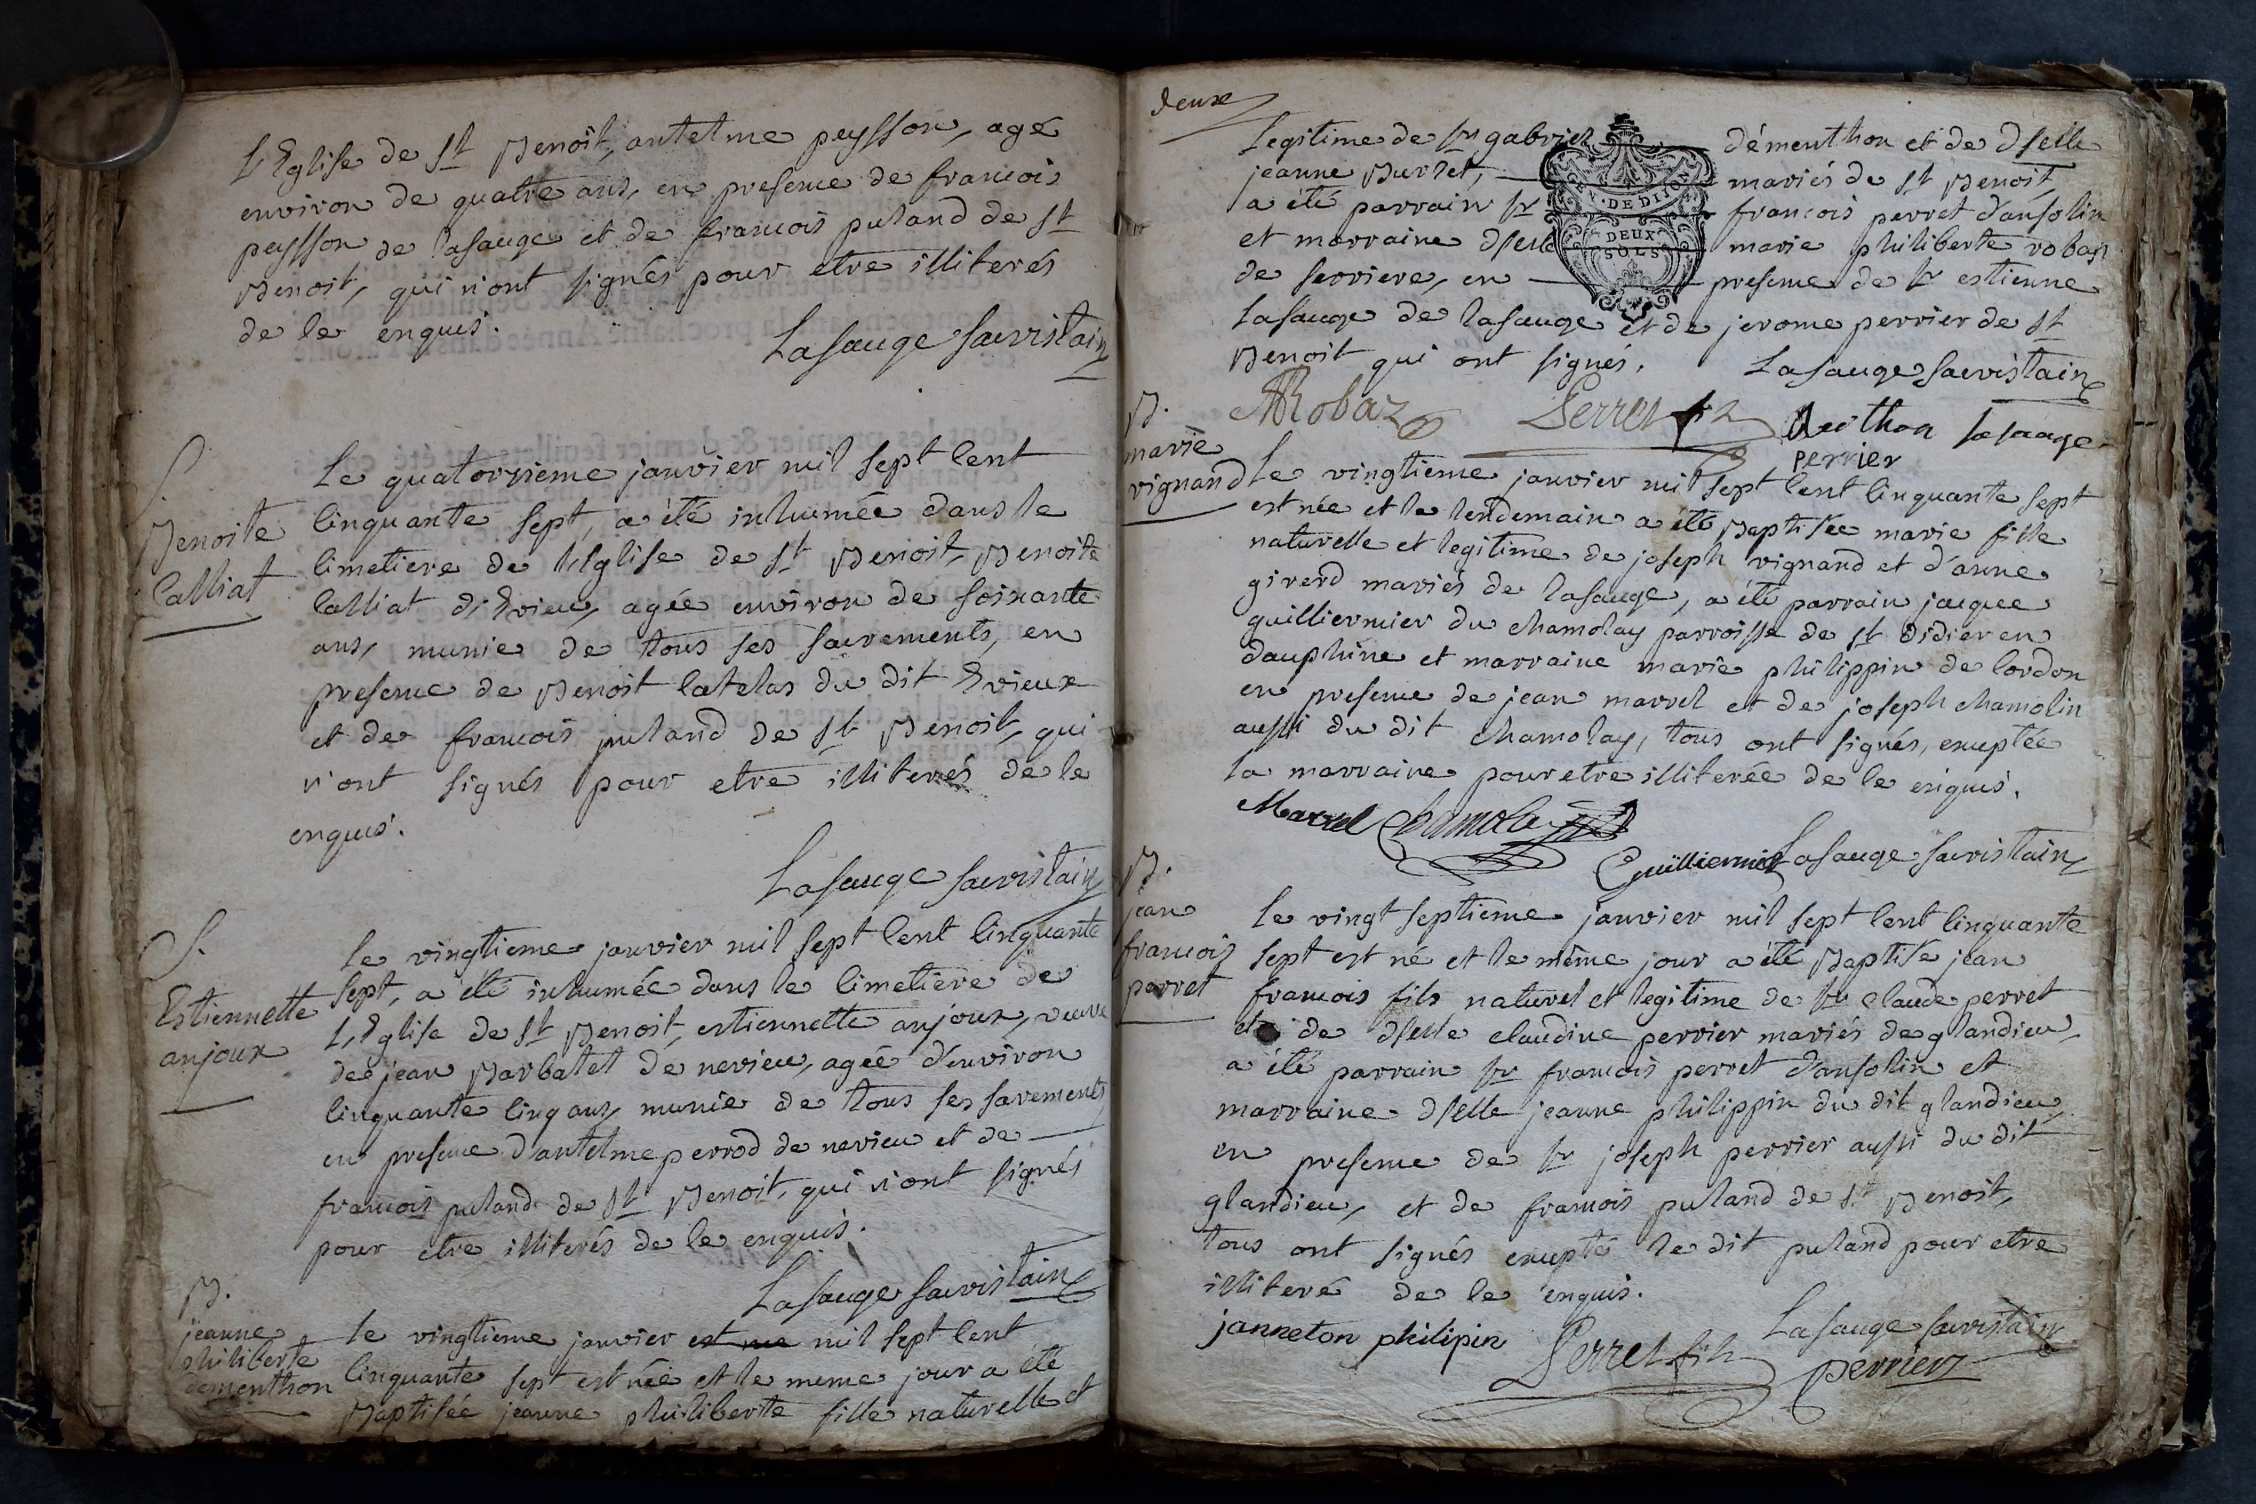 L'Eglise de St Benoit, antelme peysson, agé
environ de quatre ans, en presence de francois
peysson de lasauge et de francois puland de St
Benoit, qui n'ont signés pour etre illiterés
de ce enquis.
Lasauge sacristain
S.
Benoite
Calliat
Le quatorzieme janvier mil sept cent
cinquante sept, a été inhumée dans le
cimetiere de l'Eglise de St Benoit, Benoite
Calliat d'Evieu, agée environ de soixante
ans, munie de tous ses sacrements, en
presence de Benoit catelas du dit Evieux
et de francois puland de St Benoit, qui
n'ont signés pour etre illiterés de ce
enquis.
Lasauge sacristain
S.
Estiennette
anjoux
Le vingtieme janvier mil sept cent cinquante
sept, a été inhumée dans le cimetiere de
L'Eglise de St Benoit, estiennette anjoux, veuve
de jean Barbatet de nevieu, agée d'environ
cinquante cinq ans, munie de tous ses sacrements
en presence d'antelme perrod de nevieu et de
francois puland de St Benoit, qui n'ont signés
pour etre illiterés de ce enquis.
Lasauge sacristain
B.
jeanne
philiberte
dementhon
le vingtieme janvier est née mil sept cent
cinquante sept est née et le meme jour a été
Baptisée jeanne philiberte fille naturelle et
deux
Legitime de sr gabriel démenthon et de dselle
jeanne Burlet, mariés de St Benoit,
a été parrain sr francois perret d'ansolin
et marraine dselle marie philiberte robaz
de serriere, en presence de sr estienne
GEN. DE DIJON
DEUX
SOLS
Lasauge de lasauge et de jerome perrier de St
Benoit qui ont signés.
Lasauge sacristain
Robaz Perret fils lasauge
perrier
B.
marie
vignand
Le vingtieme janvier mil sept cent cinquante sept
est née et le lendemain a été Baptisée marie fille
naturelle et legitime de joseph vignand et d'anne
girerd mariés de lasauge, a été parrain jacque
guilliermier du chamolay parroisse de St Didier en
dauphine et marraine marie philippin de cordon
en presence de jean marrel et de joseph chamolin
aussi du dit chamolay, tous ont signés, exceptée
la marraine pour etre illiterée de ce enquis.
Marrel
Guilliermier Lasauge sacristain
B.
jean
francois
perret
Le vingt septieme janvier mil sept cent cinquante
sept est né et le même jour a été Baptisé jean
francois fils naturel et legitime de sr claude perret
et de dselle claudine perrier mariés de glandieu,
a été parrain sr francois perret d'ansolin et
marraine dselle jeanne philippin du dit glandieu,
en presence de sr joseph perrier aussi du dit
glandieu, et de francois puland de St Benoit,
tous ont signés excepté le dit puland pour etre
illiteré de ce enquis.
Lasauge sacristain
janneton philipin Perret fils perrier